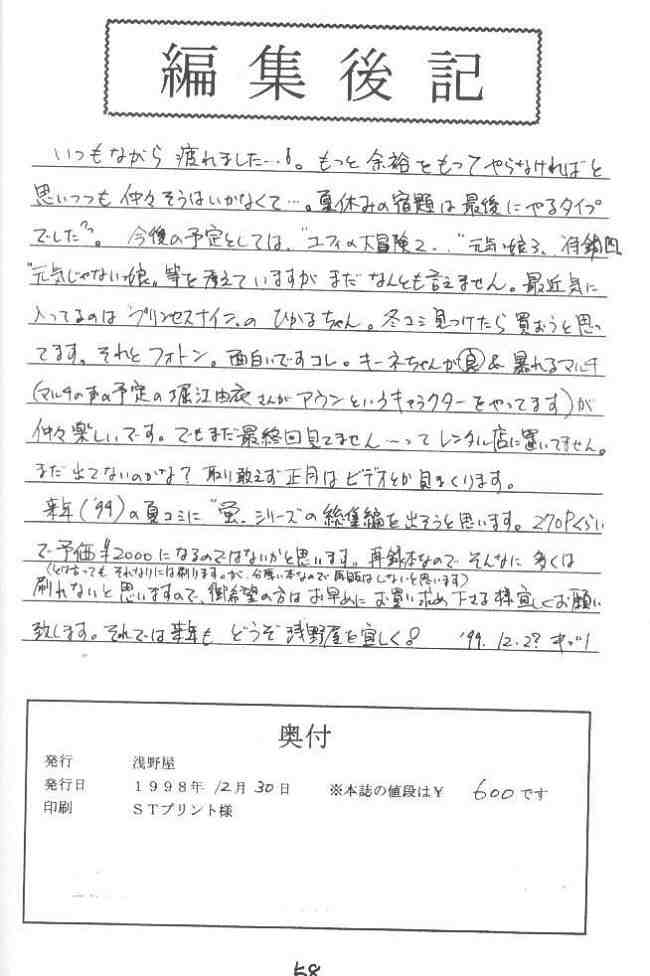 編集後記
いつもながら 疲れました…。もっと 余裕をもって やらなければと
思いつつも 仲々そうはいかなくて…。夏休みの宿題は最後にやるタイプ
でした。今後の予定としては、"ユフィの大冒険2" "元気な娘3、
"元気じゃない娘" 等を考えていますが まだ なんとも言えません。最近気に
入ってるのは "プリンセスナイン" の ひかるちゃん。冬コミ見つけたら 買おうと思っ
てます。それと フォトン。面白いですコレ。キーネちゃんが良 & 暴れるマルチ
(マルチの声の予定の 堀江由衣さんが アウンというキャラクターをやってます)が
仲々楽しいです。でもまだ最終回見てません…って レンタル店に置いてません。
まだ 出てないのかな? 取り敢えず 正月は ビデオとか 見まくります。
来年('99)の夏コミに "蛍" シリーズの 総集編を出そうと思います。270Pくらい
で 予価¥2000になるのではないかと思います。再録本なので そんなに 多くは
(とは言っても それなりには刷りますが、分厚い本なので 再版はしないと思います)
刷れないと思いますので、御希望の方は お早めに お買い求め下さる様宜しくお願い
致します。それでは来年も どうぞ 浅野屋を宜しく。 '99.12.27
奥付
発行 浅野屋
発行日 1998年 12月 30日 ※本誌の値段は¥ 600です
印刷 STプリント様
58